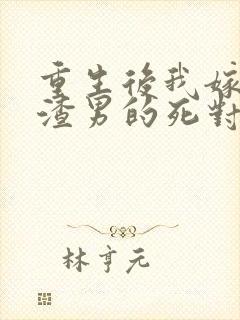 重生後我嫁
渣男的死對
林亨元